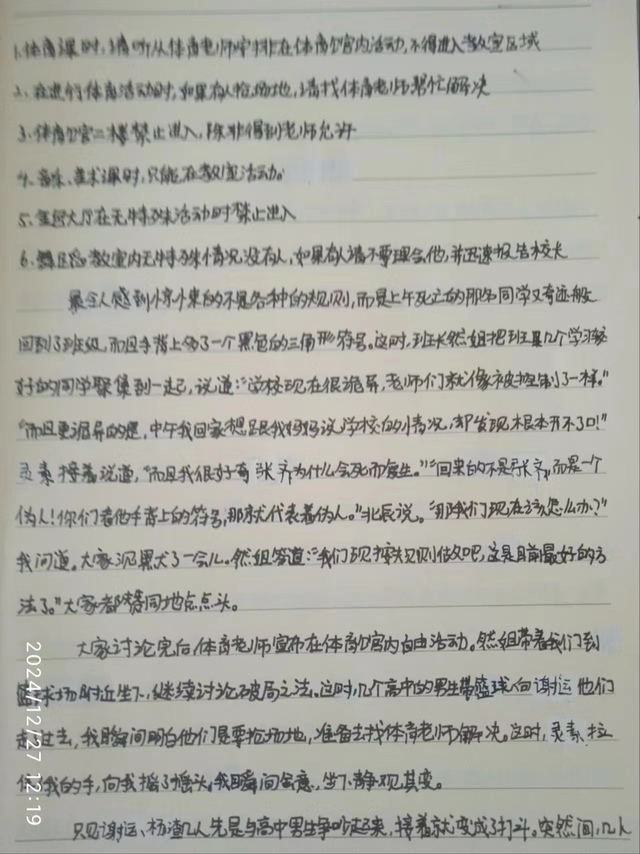 1.体育课时,请听从体育老师安排在体育馆内活动,不得进入教室区域
2.在进行体育活动时,如果有人抢场地,请找体育老师帮忙解决
3.体育馆二楼禁止进入,除非得到老师允许
4.音乐、美术课时,只能在教室活动。
5.宴会大厅在无特殊活动时禁止进入
6.舞蹈教室内无特殊情况没有人,如果有人请不要理会他,并迅速报告校长
最令人感到惊悚的不是各种的规则,而是上午死亡的那名同学又奇迹般
回到了班级,而且手背上多了一个黑色的三角形符号。这时,班长然姐把班里几个学习较
好的同学聚集到一起,说道:“学校现在很诡异,老师们就像被控制了一样。”
“而且更诡异的是,中午我回家想跟我妈妈说学校的情况,却发现根本开不了口!”
灵素接着说道,“而且我很好奇张齐为什么会死而复生。”“回来的不是张齐,而是一个
伪人!你们看他手背上的符号,那就代表着伪人。”北辰说。“那我们现在该怎么办?”
我问道。大家沉默了一会儿。然姐答道:“我们现按规则做吧,这是目前最好的方
法了。”大家都赞同地点点头。
大家讨论完后,体育老师宣布在体育馆内自由活动。然姐带着我们到
篮球场附近坐下,继续讨论破局之法。这时,几个高中的男生带篮球向谢运他们
走过去,我瞬间明白他们是要抢场地,准备去找体育老师解决。这时,灵素拉
住我的手,向我摇了摇头,我瞬间会意,坐下静观其变。
只见谢运、杨渣几人先是与高中男生争吵起来,接着就变成了打斗。突然间,几人
2024/12/27 12:19